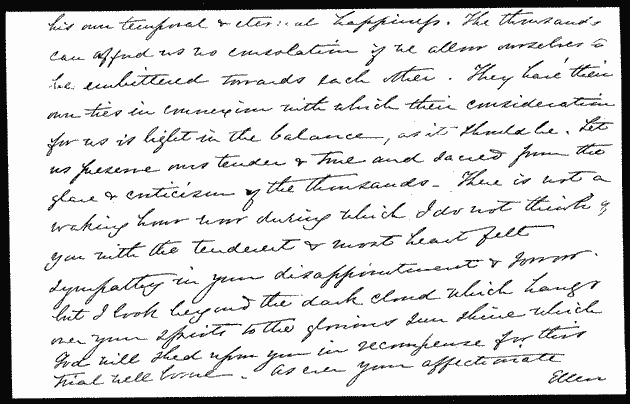 his own temporal & eternal happiness. The thousands
can afford us no consolation if we allow ourselves to
be embittered towards each other. They have their
own ties in connexion with which their consideration
for us is light in the balance, as it should be. Let
us preserve ours tender & true and sacred from the
glare & criticism of the thousands - There is not a
waking hour now during which I do not think of
you with the tenderest & most heart felt
sympathy in your disappointment & sorrow.
but I look beyond the dark cloud which hangs
over your spirits to the glorious sun shine which
God will shed upon you in recompense for this
trial well borne. As ever your affectionate
Ellen